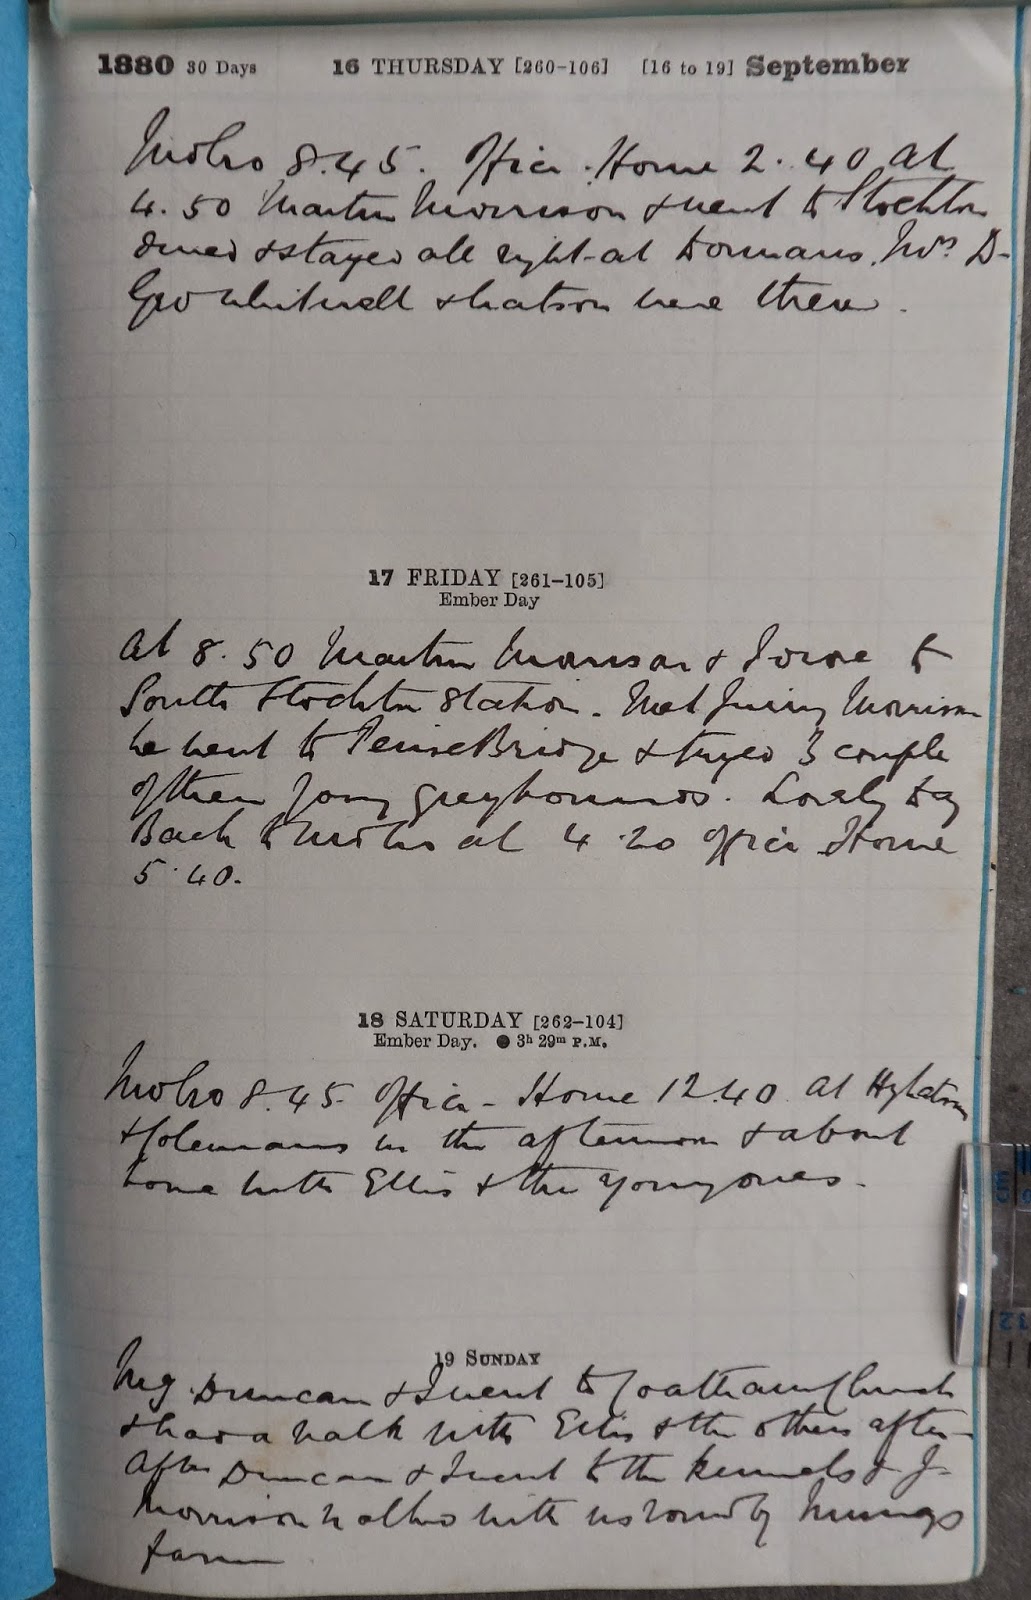 1880 30 Days 16 THURSDAY [260-106] [16 to 19] September
Mbro 8.45. Office. Home 2.40 At
4.50 Martin Morrison & went to Stockton
dined & stayed all night at Dormans. Mrs D.
Geo Whitwell & Watson were there.
17 FRIDAY [261-105]
Ember Day
At 8.50 Martin Morrison & I drove to
South Stockton Station. Met Morrison
he went to Bridge & tryed 3 couple
of their young greyhounds. Lovely day
Back to Mbro at 4.20 Office Home
5.40.
18 SATURDAY [262-104]
Ember Day. ● 3h 29m P.M.
Mbro 8.45 Office - Home 12.40. At
& Colemans in the afternoon & about
home with Ellis & the young ones.
19 SUNDAY
Mg. Duncan & I went to Coatham Church
& had a walk with Ellis & the others after.
After Duncan & I went to the kennels & J.
Morrison walked with us round by
farm